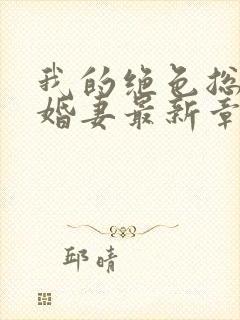 我的绝色总
婚妻最新章
邱晴